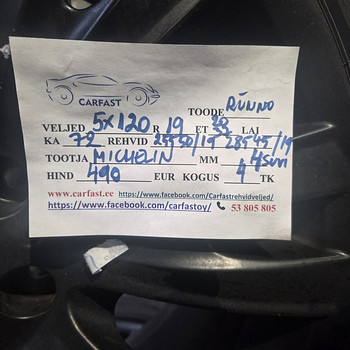 CARFAST
TOODE RÜNNO
VELJED 5X120 R 19 ET LAI
KA 72 REHVID 25550/19 28545/19
TOOTJA MICHELIN MM
HIND 490 EUR KOGUS 4 TK
www.carfast.ee https://www.facebook.com/Carfastrehvidveljed/
https://www.facebook.com/carfastoy/ 53 805 805